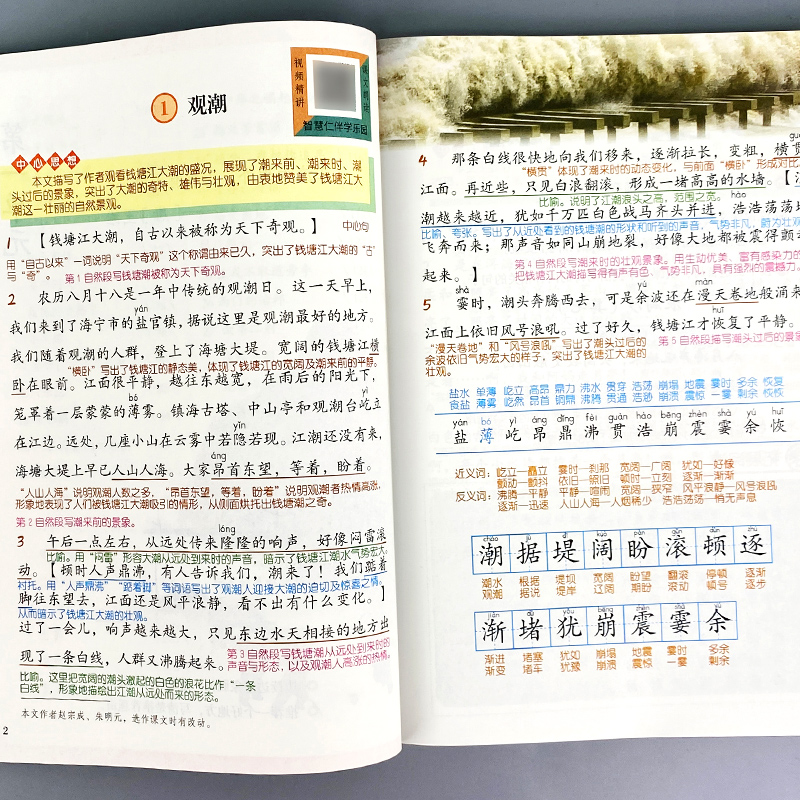 1 观潮
视频精讲
智慧仁伴学乐园
中心思想
本文描写了作者观看钱塘江大潮的盛况，展现了潮来前、潮来时、潮
头过后的景象，突出了大潮的奇特、雄伟与壮观，由衷地赞美了钱塘江大
潮这一壮丽的自然景观。
1 【钱塘江大潮，自古以来被称为天下奇观。】 中心句
用“自古以来”一词说明“天下奇观”这个称谓由来已久，突出了钱塘江大潮的“古”
与“奇”。 第1自然段写钱塘潮被称为天下奇观。
2 农历八月十八是一年中传统的观潮日。这一天早上，
yán
我们来到了海宁市的盐官镇，据说这里是观潮最好的地方。
我们随着观潮的人群，登上了海塘大堤。宽阔的钱塘江横
“横卧”写出了钱塘江的静态美，体现了钱塘江的宽阔及潮来前的平静。
卧在眼前。江面很平静，越往东越宽，在雨后的阳光下，
bó yì
笼罩着一层蒙蒙的薄雾。镇海古塔、中山亭和观潮台屹立
yǐn
在江边。远处，几座小山在云雾中若隐若现。江潮还没有来，
áng
海塘大堤上早已人山人海。大家昂首东望，等着，盼着。
“人山人海”说明观潮人数之多，“昂首东望，等着，盼着”说明观潮者热情高涨，
形象地表现了人们被钱塘江大潮吸引的情形，从侧面烘托出钱塘潮之奇。
第2自然段写潮来前的景象。
lóng
3 午后一点左右，从远处传来隆隆的响声，好像闷雷滚
比喻。用“闷雷”形容大潮从远处到来时的声音，暗示了钱塘江潮水气势宏大。
动。【顿时人声鼎沸，有人告诉我们，潮来了！我们踮着
衬托。用“人声鼎沸”“踮着脚”等词语写出了观潮人迎接大潮的急切及惊喜之情。
脚往东望去，江面还是风平浪静，看不出有什么变化。】
从而暗示了钱塘江大潮的壮观。
过了一会儿，响声越来越大，只见东边水天相接的地方出
现了一条白线，人群又沸腾起来。 第3自然段写钱塘江潮从远处到来时的
声音与形态，以及观潮人高涨的热情。
比喻。这里把宽阔的潮头激起的白色的浪花比作“一条
白线”，形象地描绘出江潮从远处而来的形态。
本文作者赵宗成、朱明元，选作课文时有改动。
2
4 那条白线很快地向我们移来，逐渐拉长，变粗，横贯
“横贯”体现了潮来时的动态变化，与前面“横卧”形成对比
江面。再近些，只见白浪翻滚，形成一堵高高的水墙。【江
比喻。说明了江潮浪头之高，范围之宽。
潮越来越近，犹如千万匹白色战马齐头并进，浩浩荡荡地
比喻、夸张。写出了从近处看到的钱塘潮的形状和听到的声音，气势非凡，蔚为壮观
飞奔而来；那声音如同山崩地裂，好像大地都被震得
起来。】 第4自然段写潮来时的壮观景象。用生动优美、富有感染力的
把钱塘江大潮描写得有声有色、气势非凡，具有强烈的震撼力。
shà yú màn
5 霎时，潮头奔腾西去，可是余波还在漫天卷地般涌来
huī
江面上依旧风号浪吼。过了好久，钱塘江才恢复了平静。
“漫天卷地”和“风号浪吼”写出了潮头过后的
余波依旧气势宏大的样子，突出了钱塘江大潮的
壮观。
第5自然段描写潮头过后的景象
盐水 单薄 屹立 高昂 鼎力 沸水 贯穿 浩荡 崩塌 地震 霎时 多余 恢复
食盐 薄雾 屹然 昂首 铜鼎 沸腾 贯通 浩渺 崩溃 震惊 一霎 剩余
yán bó yì áng dǐng fèi guàn hào bēng zhèn shà yú huī
盐 薄 屹 昂 鼎 沸 贯 浩 崩 震 霎 余 恢
近义词：屹立—矗立 霎时—刹那 宽阔—广阔 犹如—好像
颤动—颤抖 依旧—照旧 顿时—立刻 逐渐—渐渐
反义词：沸腾—平静 平静—喧闹 宽阔—狭窄 风平浪静—风号浪吼
逐渐—迅速 人山人海—人烟稀少 浩浩荡荡—悄无声息
cháo jù dī kuò pàn gǔn dùn zhú
潮 据 堤 阔 盼 滚 顿 逐
潮水 根据 堤坝 宽阔 盼望 翻滚 停顿 逐渐
观潮 据说 堤岸 辽阔 期盼 滚动 顿号 逐步
jiàn dǔ yóu bēng zhèn shà yú
渐 堵 犹 崩 震 霎 余
渐进 堵塞 犹如 崩塌 地震 霎时 多余
渐变 堵车 犹豫 崩溃 震惊 一霎 剩余